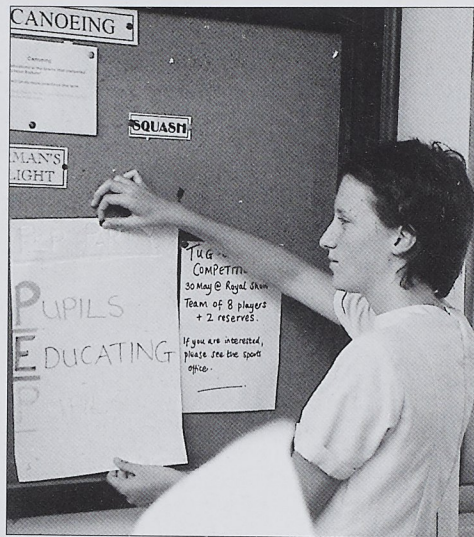 CANOEING
Canoeing
SQUASH
MAN'S
LIGHT
PUPILS
EDUCATING
P
TUG
COMPETITI
30 May @ Royal Show
Team of 8 players
+ 2 reserves.
If you are interested,
please see the sports
office.